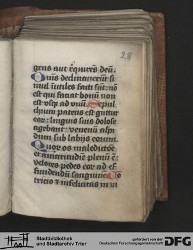 28
gens aut requirens deũ.
Omnes declinauerũt si
mul inutiles facti sũt: nõ
est qui faciat bonũ non
est vsqz ad vnũ. Sepul
chrum patens est guttur
eoꝝ: linguis suis dolose
agebant: venenũ aspi
dum sub labijs eorum.
Quoꝝ os maledictõe
et amaritudĩe plenũ ē:
veloces pedes eoꝝ ad ef
fundendũ sanguinẽ. Cõ
tricio et infelicitas in vi
Stadtbibliothek
und Stadtarchiv Trier
gefördert von der
Deutschen Forschungsgemeinschaft
DFG